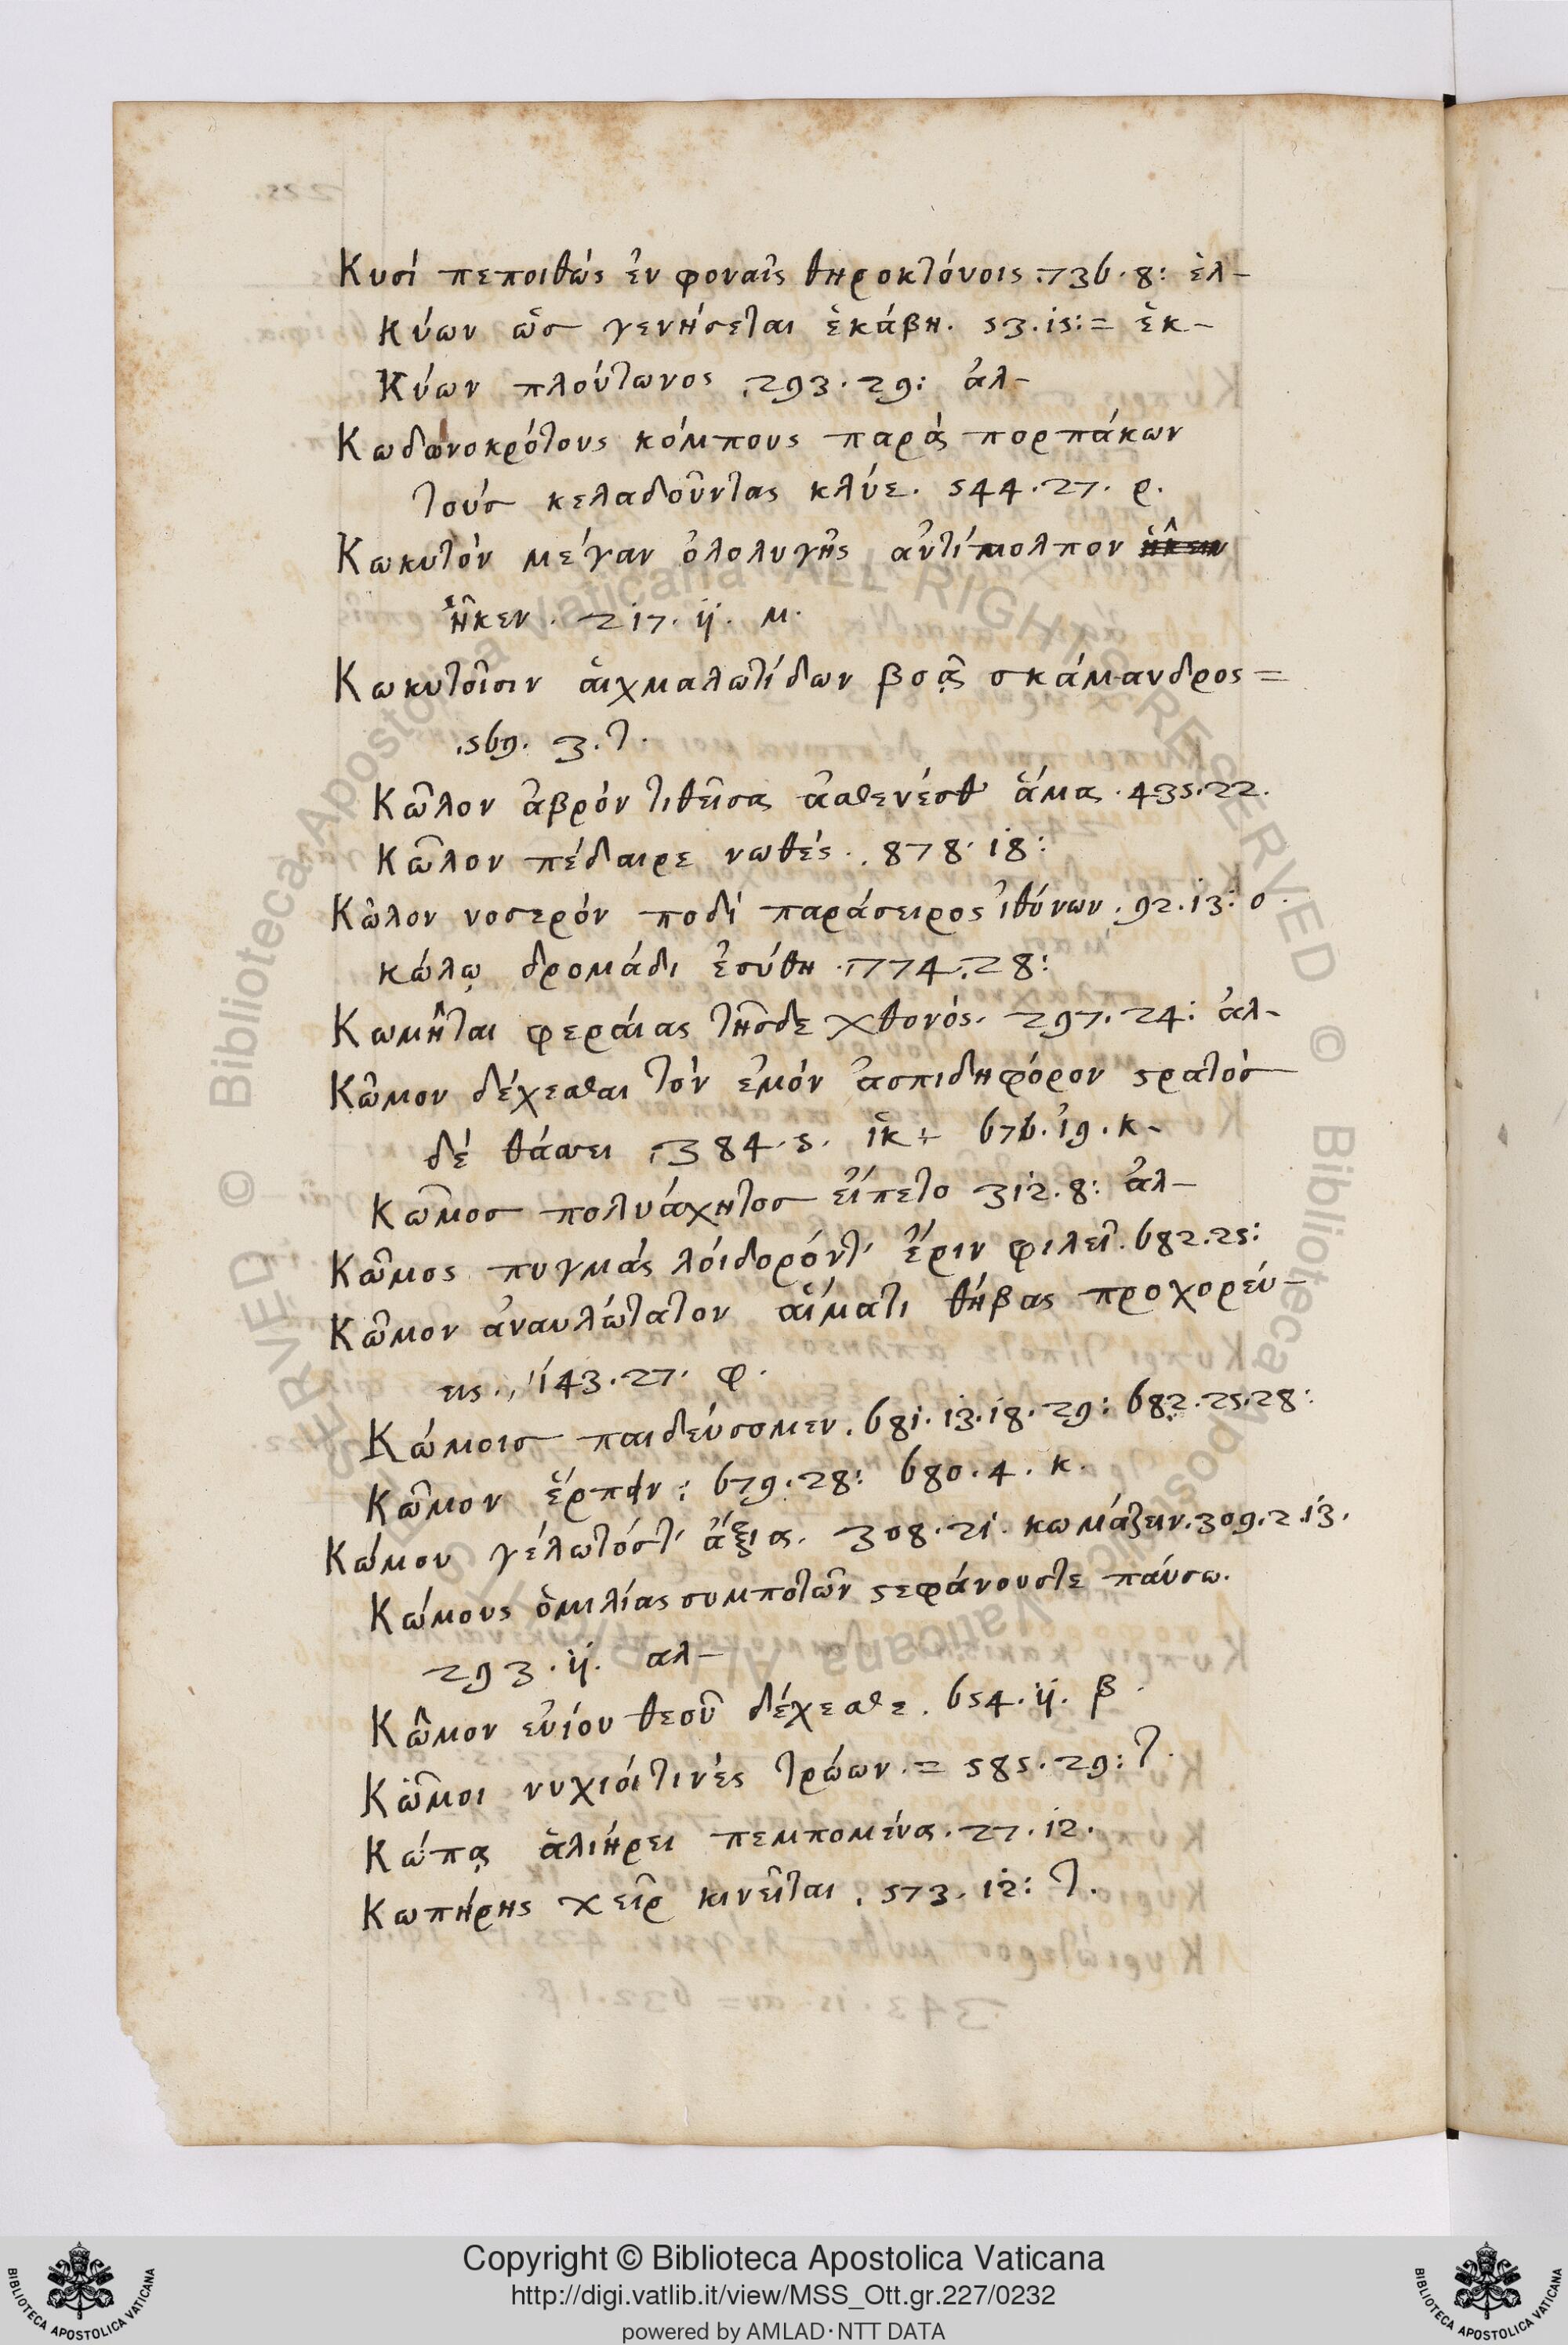 Κυσί πεποιθώς ἐν φοναῖς θηροκτόνοις .736.8: ἑλ-
Κύων ὡσ γενήσεται ἑκάβη. 53.15:= ἑκ-
Κύων πλούτωνος .293.29: ἀλ-
Κωδωνοκρότους κόμπους παρά πορπάκων
τούσ κελαδοῦντας κλύε. 544.27. ρ.
Κωκυτόν μέγαν ὀλολυγῆς ἀντίμολπον
ἧκεν. 217.11. μ.
Κωκυτοῖσιν αἰχμαλωτίδων βοᾷ σκάμανδρος=
.569. 3.τ.
Κῶλον ἁβρόν τιθεῖσα ἀσθενέσθ' ἅμα.435.22.
Κῶλον πέδαιρε νωθές. .878.18:
Κῶλον νοσερόν ποδί παράσειρος ἰθύνων.92.13: ο.
κώλῳ δρομάδι ἐσύθη .774.28:
Κωμῆται φεραίας τῆσδε χθονός. 297.24: ἀλ-
Κῶμον δέχεσθαι τόν ἐμόν ἀσπιδηφόρον ϛρατόσ
δέ θάσσει .384.5. ἱκ+ 676.19.κ-
Κῶμοσ πολυάχητοσ εἵπετο 312.8: ἀλ-
Κῶμος πυγμάς λοίδορόντ' ἔριν φιλεῖ.682.25:
Κῶμον ἀναυλώτατον αἵματι θήβας προχορεύ-
εις.,143.27. φ.
Κώμοισ παιδεύσομεν.681.13.18.29: 682.25.28:
Κῶμον ἕρπειν: 679.28: 680.4. κ.
Κώμου γέλωτόστ' ἄξια. 308.21. κωμάζειν.309.2.13.
Κώμους ὁμιλίας συμποτῶν ϛεφάνουστε παύσω.
293.11. αλ-
Κῶμον εὐίου θεοῦ δέχεσθε. 654.11. β.
Κῶμοι νυχιοίτινές τρώων.= 585.29: τ.
Κώπᾳ ἁλιήρει πεμπομένα.27.12.
Κωπήρης χεῖρ κινεῖται. 573.12: τ.
Copyright © Biblioteca Apostolica Vaticana
http://digi.vatlib.it/view/MSS_Ott.gr.227/0232
powered by AMLAD·NTT DATA
BIBLIOTECA APOSTOLICA VATICANA
BIBLIOTECA APOSTOLICA VATICANA
© Biblioteca Apostolica Vaticana ALL RIGHTS RESERVED © Biblioteca Apostolica Vaticana ALL RIGHTS RESERVED